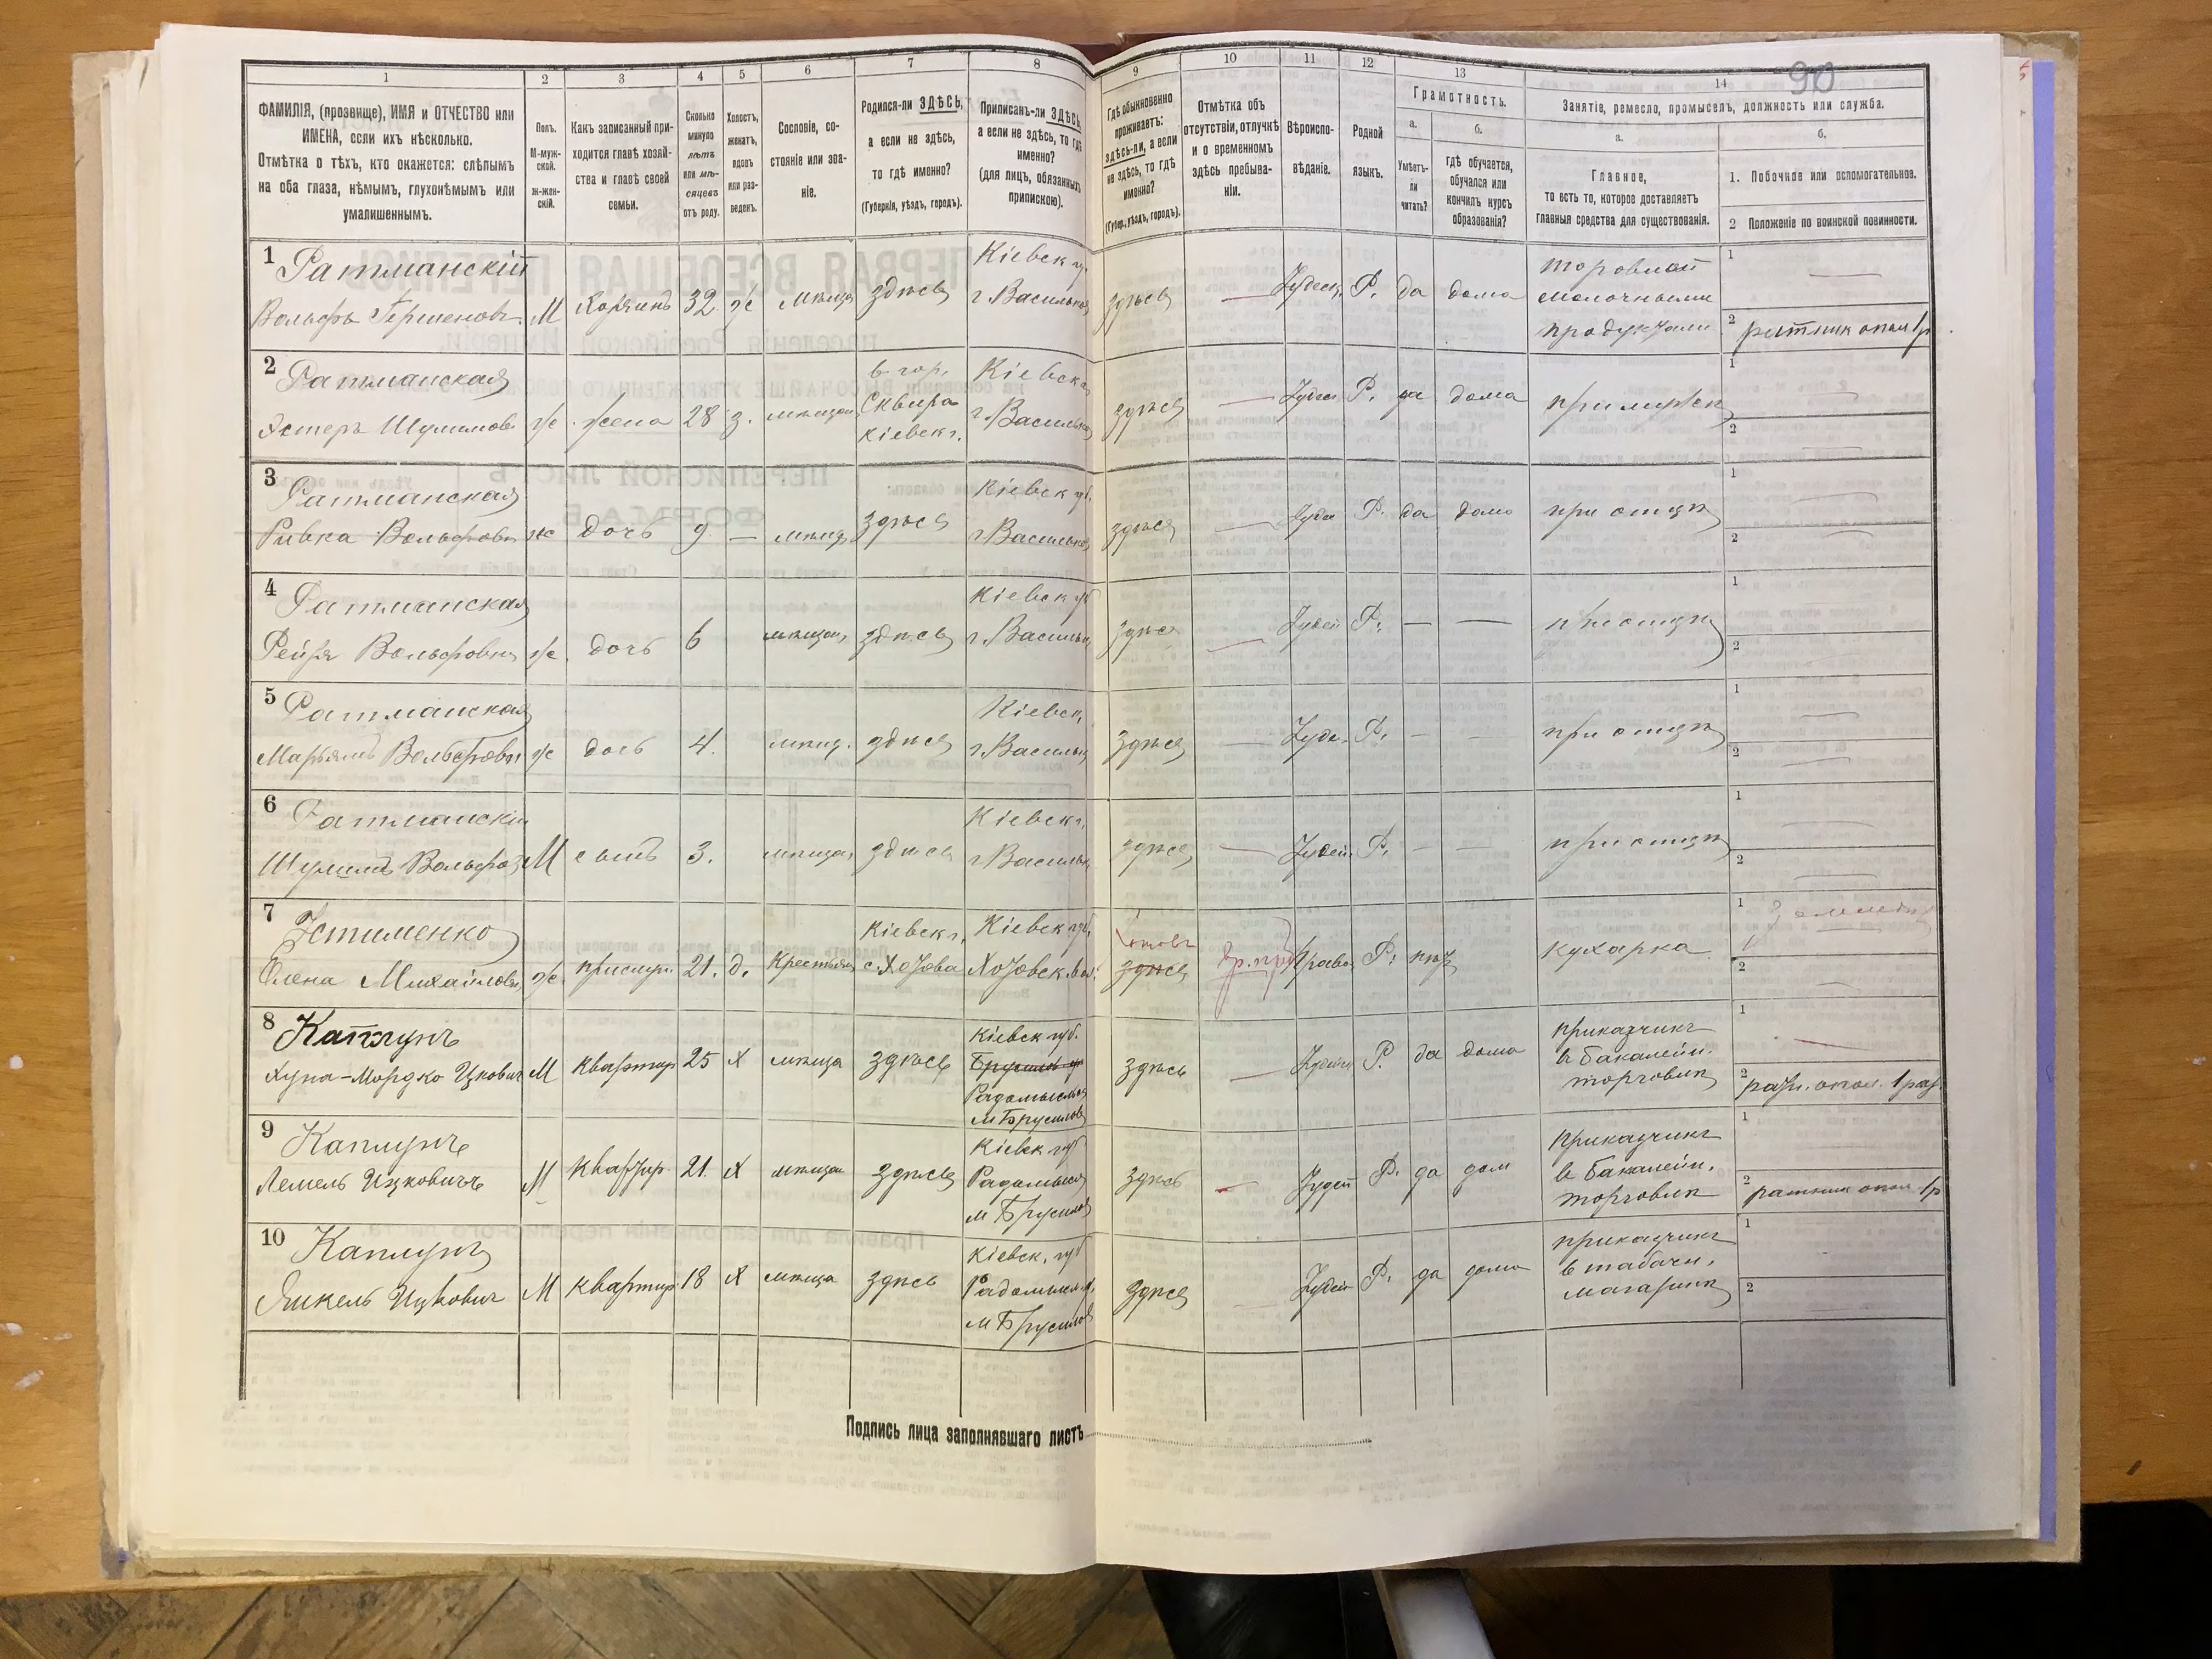 90
1 2 3 4 5 6 7 8 9 10 11 12 13 14
ФАМИЛІЯ, (прозвище), ИМЯ и ОТЧЕСТВО или
ИМЕНА, если ихъ нѣсколько.
Отмѣтка о тѣхъ, кто окажется: слѣпымъ
на оба глаза, нѣмымъ, глухонѣмымъ или
умалишеннымъ.
Полъ.
М-муж-
ской.
Ж-жен-
скій.
Какъ записанный при-
ходится главѣ хозяй-
ства и главѣ своей
семьи.
Сколько
минуло
лѣтъ
или мѣ-
сяцевъ
отъ роду.
Холостъ,
женатъ,
вдовъ
или раз-
веденъ.
Сословіе, со-
стояніе или зва-
ніе.
Родился-ли ЗДѢСЬ,
а если не здѣсь,
то гдѣ именно?
(Губернія, уѣздъ, городъ).
Приписанъ-ли ЗДѢСЬ,
а если не здѣсь, то гдѣ
именно?
(для лицъ, обязанныхъ
припискою).
Гдѣ обыкновенно
проживаетъ:
здѣсь-ли, а если
не здѣсь, то гдѣ
именно?
(Губер., уѣздъ, городъ).
Отмѣтка объ
отсутствіи, отлучкѣ
и о временномъ
здѣсь пребыва-
ніи.
Вѣроиспо-
вѣданіе.
Родной
языкъ.
Грамотность.
а.
Умѣетъ-
ли
читать?
б.
гдѣ обучается,
обучался или
кончилъ курсъ
образованія?
Занятіе, ремесло, промыселъ, должность или служба.
а.
Главное,
то есть то, которое доставляетъ
главныя средства для существованія.
б.
1. Побочное или вспомогательное.
2 Положеніе по воинской повинности.
1 Ратманскій
Вольфъ Гершеновъ М Хозяинъ 32 ж мѣща здѣсь
Кіевск г.
г Васильков
здѣсь — Іудейск. Р. да дома
торговлей
молочными
продуктами
1 —
2 ратник опол 1 р
2 Ратманская
Эстеръ Шулимов ж жена 28 з. мѣщан
в гор.
Сквира
Кіевск г.
Кіевска
г. Васильков
здѣсь — Іудей Р. да дома при мужѣ
1
2
3 Ратманская
Ривка Вольфовн ж дочь 9 — мѣщ здѣсь
Кіевск гб.
г Васильков
здѣсь — Іудей Р. да дома при отцѣ
1
2
4 Ратманская
Рейзя Вольфовн ж. дочь 6 мѣщан, здѣсь
Кіевск гб
г. Васильк
здѣсь — Іудей Р. — — при отцѣ
1
2
5 Ратманская
Марьямъ Вольфовн ж дочь 4. мѣщ. здѣсь
Кіевск,
г. Васильк
здѣсь — Іуде. Р. — — при отцѣ
1
2
6 Ратманскій
Шулимъ Вольфов М сынъ 3. мѣщан здѣсь
Кіевск г.
г Васильк
здѣсь — Іудей. Р. — — при отцѣ
1
2
7 Устименко
Олена Михайловн ж. прислуг. 21. д. Крестьян
Кіевск г.
Кіевск гб.
здѣсь вр. пр Право Р. нѣт кухарка
1
2
8 Каплунъ
Хуна-Мордко Ицкович М Квартир 25 Х мѣща здѣсь
Кіевск губ.
Радомысль
м Брусилов
здѣсь — Іудейс Р. да дома
приказчикъ
в бакалейн.
торговлѣ
1 —
2 ратн. опол. 1 раз
9 Каплунъ
Лемель Ицковичъ М Квартир. 21. Х мѣщан здѣсь
Кіевск губ
Радомысл
м Брусилов
здѣсь — Іудей Р. да дом
приказчикъ
в бакалейн.
торговлѣ
1
2 ратник опол 1 р
10 Каплунъ
Янкель Ицкович М Квартир 18 Х мѣща здѣсь
Кіевск. губ
Радомысл.
м Брусилов
здѣсь — Іудей Р. да дома
приказчикъ
в табачн.
магазинѣ
1
2
Подпись лица заполнявшаго листъ